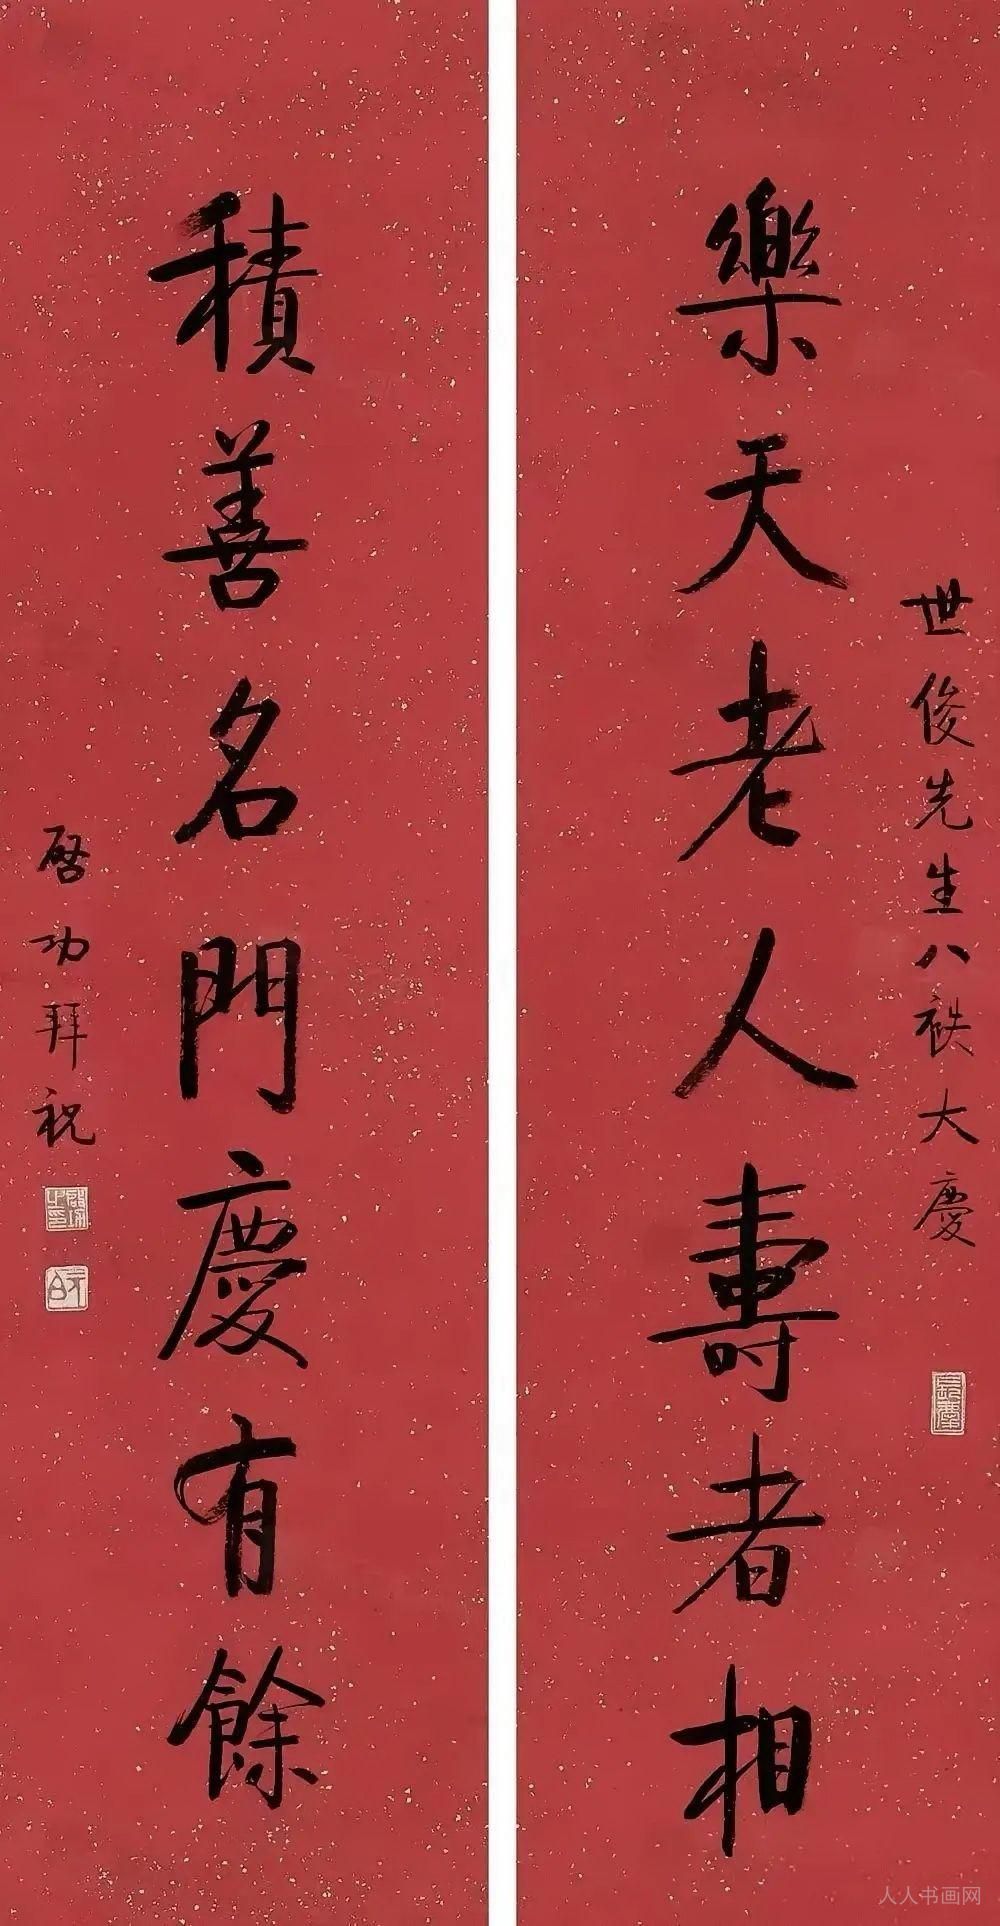 世俊先生八袟大慶
樂天老人壽者相
積善名門慶有餘
啓功拜祝
人人书画网